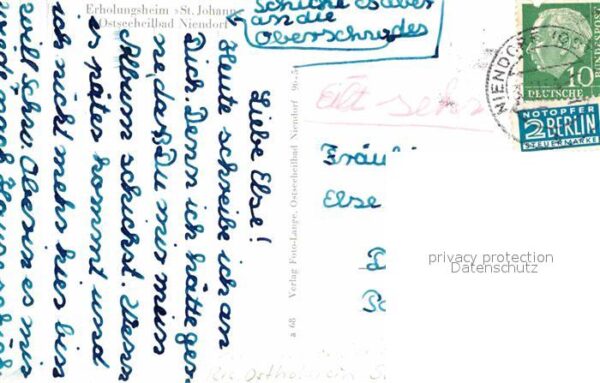 Erholungsheim »St. Johann
Ostseeheilbad Niendorf
Schicke es aber
an die
Oberschwdes
Liebe Else!
Heute schreibe ich an
Dich. Denn ich hätte ger
ne, daß Du mir mein
Album schickst. Wenn
es später kommt und
ich nicht mehr hier bin
will Schw. Oberin es mir
nach Hause
a 68 Verlag Foto-Lange, Ostseeheilbad Niendorf
Eilt sehr
NIENDORF
10
DEUTSCHE
BUNDESPOST
NOTOPFER
2 BERLIN
STEUERMARKE
Fräul
Else
privacy protection
Datenschutz